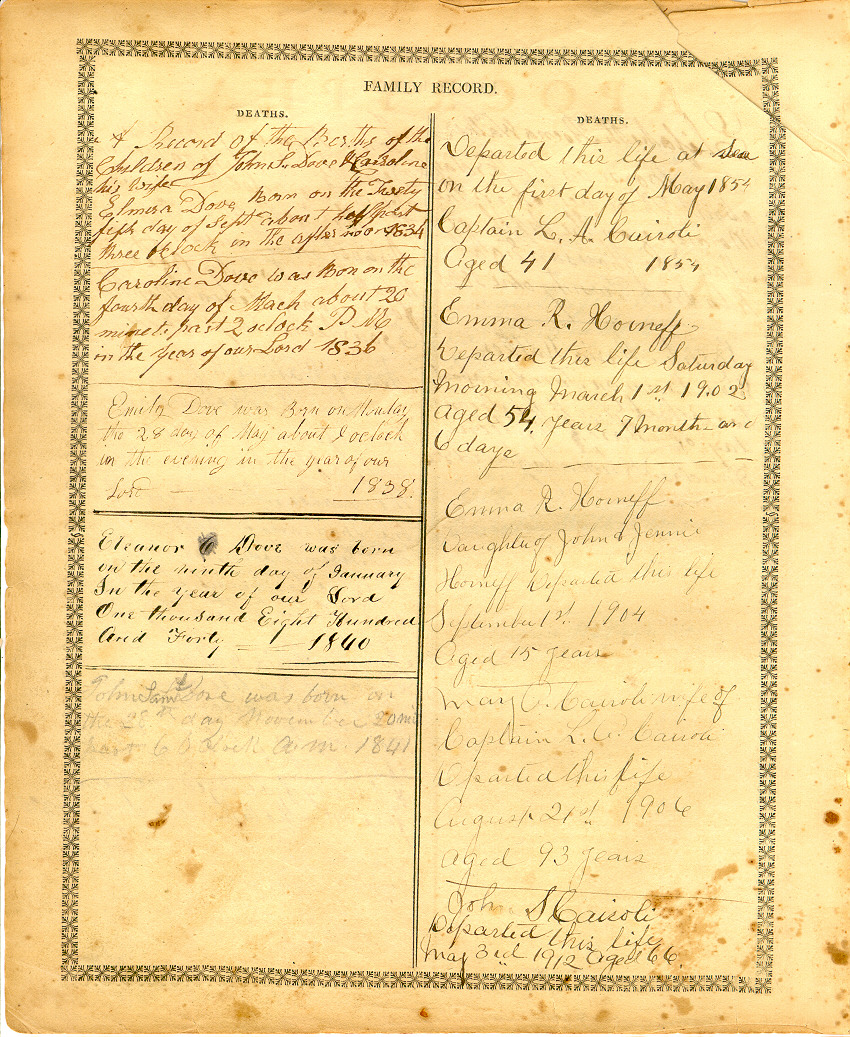 FAMILY RECORD.
DEATHS.
A Record of the Berths of the
Children of John S. Dove & Caroline
his wife
Elmira Dove Born on the Twenty
fifth day of Sept about half past
three oclock in the after noon 1834
Caroline Dove was Bon on the
fourth day of Mach about 20
minets past 2 oclock P M
in the Year of our Lord 1836
Emily Dove was Born on Monday
the 28 day of May about oclock
in the evening in the year of our
Lord 1838.
Eleanor Dove was born
on the ninth day of January
In the Year of our Lord
One thousand Eight Hundred
And Forty 1840
John Dove was born on
the 28th day November 20 min
past 6 oclock A.M. 1841
DEATHS.
Departed this life at Sea
on the first day of May 1854
Captain L. A. Cairoli
Aged 41 1854
Emma R. Horneff
Departed this life Saturday
Morning March 1st 1902
aged 54 Years 7 Month and
6 days
Emma R. Horneff
Daughter of John & Jennie
Horneff Departed this life
September 1st 1904
Aged 15 Years
Mary Cairoli wife of
Captain L. A. Cairoli
Departed this life
August 21st 1906
aged 93 Years
John S Cairoli
Departed this life
May 3rd 1912 Aged 66